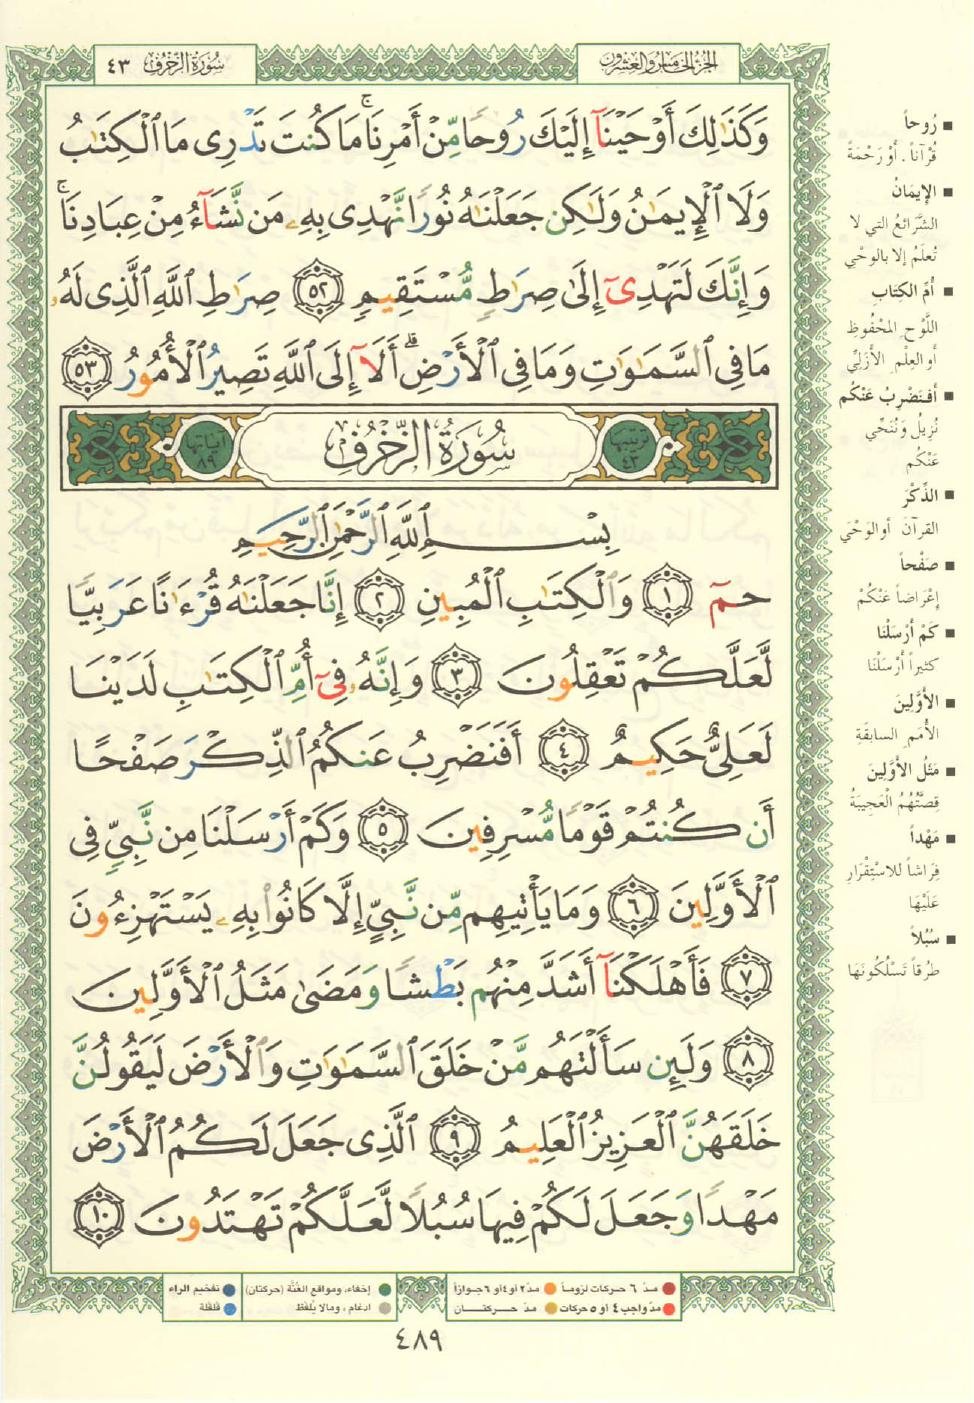 سُورَةُ الزُّخْرُفِ ٤٣
الجُزْءُ الخَامِسُ وَالعِشْرُون
وَكَذَٰلِكَ أَوْحَيْنَآ إِلَيْكَ رُوحًا مِّنْ أَمْرِنَا ۚ مَا كُنتَ تَدْرِى مَا ٱلْكِتَٰبُ
وَلَا ٱلْإِيمَٰنُ وَلَٰكِن جَعَلْنَٰهُ نُورًا نَّهْدِى بِهِۦ مَن نَّشَآءُ مِنْ عِبَادِنَا ۚ
وَإِنَّكَ لَتَهْدِىٓ إِلَىٰ صِرَٰطٍ مُّسْتَقِيمٍ ٥٢ صِرَٰطِ ٱللَّهِ ٱلَّذِى لَهُۥ
مَا فِى ٱلسَّمَٰوَٰتِ وَمَا فِى ٱلْأَرْضِ ۗ أَلَآ إِلَى ٱللَّهِ تَصِيرُ ٱلْأُمُورُ ٥٣
ترتيبها ٤٣ سُورَةُ الزُّخْرُفِ آياتها ٨٩
بِسْمِ ٱللَّهِ ٱلرَّحْمَٰنِ ٱلرَّحِيمِ
حمٓ ١ وَٱلْكِتَٰبِ ٱلْمُبِينِ ٢ إِنَّا جَعَلْنَٰهُ قُرْءَٰنًا عَرَبِيًّا
لَّعَلَّكُمْ تَعْقِلُونَ ٣ وَإِنَّهُۥ فِىٓ أُمِّ ٱلْكِتَٰبِ لَدَيْنَا
لَعَلِىٌّ حَكِيمٌ ٤ أَفَنَضْرِبُ عَنكُمُ ٱلذِّكْرَ صَفْحًا
أَن كُنتُمْ قَوْمًا مُّسْرِفِينَ ٥ وَكَمْ أَرْسَلْنَا مِن نَّبِىٍّ فِى
ٱلْأَوَّلِينَ ٦ وَمَا يَأْتِيهِم مِّن نَّبِىٍّ إِلَّا كَانُوا۟ بِهِۦ يَسْتَهْزِءُونَ
٧ فَأَهْلَكْنَآ أَشَدَّ مِنْهُم بَطْشًا وَمَضَىٰ مَثَلُ ٱلْأَوَّلِينَ
٨ وَلَئِن سَأَلْتَهُم مَّنْ خَلَقَ ٱلسَّمَٰوَٰتِ وَٱلْأَرْضَ لَيَقُولُنَّ
خَلَقَهُنَّ ٱلْعَزِيزُ ٱلْعَلِيمُ ٩ ٱلَّذِى جَعَلَ لَكُمُ ٱلْأَرْضَ
مَهْدًا وَجَعَلَ لَكُمْ فِيهَا سُبُلًا لَّعَلَّكُمْ تَهْتَدُونَ ١٠
رُوحاً
قُرْآناً. أَوْ رَحْمَةً
الإِيمَانُ
الشَّرَائعُ التي لا
تُعلَمُ إلا بالوحْيِ
أُمِّ الكِتَاب
اللَّوْحِ المَحْفُوظِ
أو العِلْمِ الأَزَلِيِّ
أَفَنَضْرِبُ عَنْكُم
نُزِيلُ وَنُنَحِّي
عَنْكُم
الذِّكْرَ
القرآنَ أو الوَحْيَ
صَفْحاً
إعْرَاضاً عَنْكُمْ
كَمْ أَرْسَلْنَا
كثيراً أَرْسَلْنَا
الأَوَّلِينَ
الأُمَمِ السابقَةِ
مَثَلُ الأَوَّلِينَ
قِصَّتُهُمُ الْعَجِيبَةُ
مَهْداً
فِرَاشاً للاسْتِقْرَارِ
عَلَيْهَا
سُبُلاً
طُرقاً تَسْلُكُونَهَا
مدّ ٦ حركات لزوماً مدّ ٢ أو ٤ أو ٦ جوازاً
مدّ واجب ٤ أو ٥ حركات مدّ حركتان
إخفاء، ومواقع الغُنَّة (حركتان) تفخيم الراء
ادغام، ومالا يُلفَظ قلقلة
٤٨٩